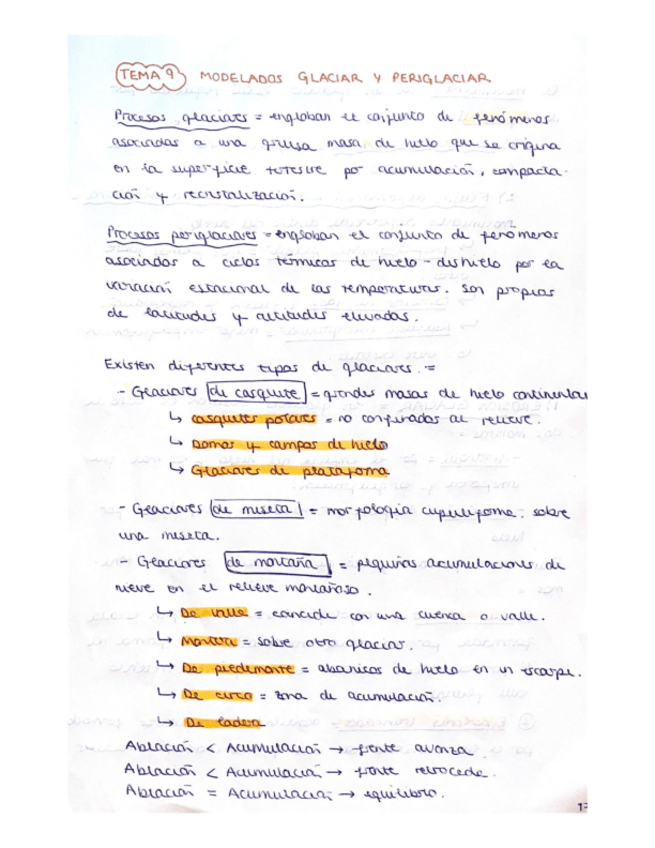 TEMA 9 MODELADOS GLACIAR Y PERIGLACIAR
Procesos glaciares = engloban el conjunto de fenómenos
asociados a una gruesa masa de hielo que se origina
en la superficie terrestre por acumulación, compacta-
ción y recristalización.
Procesos periglaciares = engloban el conjunto de fenómenos
asociados a ciclos térmicos de hielo-deshielo por la
variación estacional de las temperaturas. Son propios
de latitudes y altitudes elevadas.
Existen diferentes tipos de glaciares =
- Glaciares de casquete = grandes masas de hielo continentas
↳ casquetes polares = no confinados al relieve.
↳ Domos y campos de hielo
↳ Glaciares de plataforma
- Glaciares de meseta = morfología cupuliforme. sobre
una meseta.
- Glaciares de montaña = pequeñas acumulaciones de
nieve en el relieve montañoso.
↳ De valle = coincide con una cuenca o valle.
↳ = sobre otro glaciar.
↳ De piedemonte = abanicos de hielo en un escarpe.
↳ De circo = zona de acumulación.
↳ De ladera
Ablación < Acumulación → frente avanza.
Ablación < Acumulación → frente retrocede.
Ablación = Acumulación → equilibro.